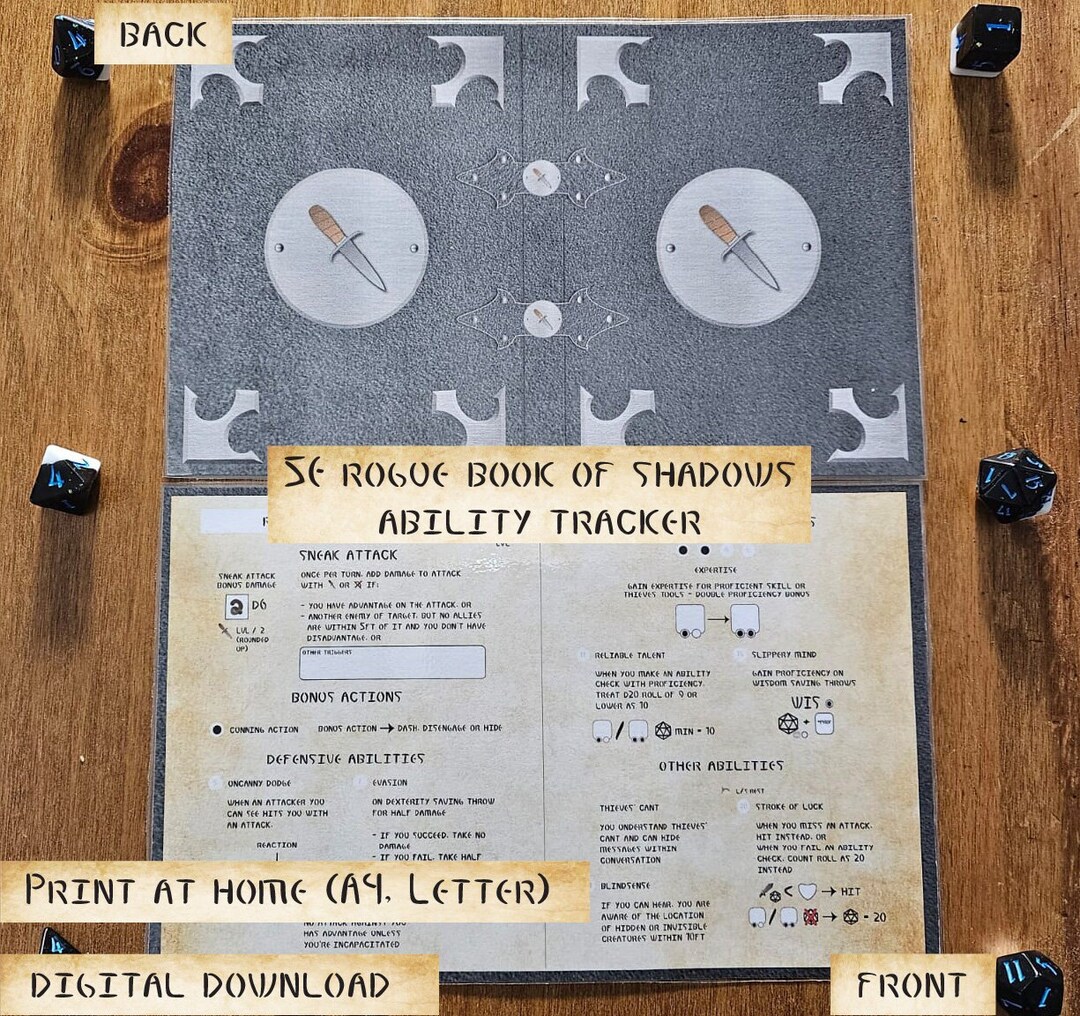 BACK
5E ROGUE BOOK OF SHADOWS
ABILITY TRACKER
LVL
SNEAK ATTACK
SNEAK ATTACK
BONUS DAMAGE
D6
LVL / 2
(ROUNDED
UP)
ONCE PER TURN, ADD DAMAGE TO ATTACK
WITH OR IF:
- YOU HAVE ADVANTAGE ON THE ATTACK, OR
- ANOTHER ENEMY OF TARGET, BUT NO ALLIES
ARE WITHIN 5FT OF IT AND YOU DON'T HAVE
DISADVANTAGE, OR
OTHER TRIGGERS
BONUS ACTIONS
CUNNING ACTION BONUS ACTION → DASH, DISENGAGE OR HIDE
DEFENSIVE ABILITIES
UNCANNY DODGE
WHEN AN ATTACKER YOU
CAN SEE HITS YOU WITH
AN ATTACK,
REACTION
EVASION
ON DEXTERITY SAVING THROW
FOR HALF DAMAGE
- IF YOU SUCCEED, TAKE NO
DAMAGE
- IF YOU FAIL, TAKE HALF
NO ATTACK AGAINST YOU
HAS ADVANTAGE UNLESS
YOU'RE INCAPACITATED
EXPERTISE
GAIN EXPERTISE FOR PROFICIENT SKILL OR
THIEVES TOOLS - DOUBLE PROFICIENCY BONUS
RELIABLE TALENT
WHEN YOU MAKE AN ABILITY
CHECK WITH PROFICIENCY,
TREAT D20 ROLL OF 9 OR
LOWER AS 10
/ MIN = 10
SLIPPERY MIND
GAIN PROFICIENCY ON
WISDOM SAVING THROWS
WIS
+
OTHER ABILITIES
L/S REST
THIEVES' CANT
YOU UNDERSTAND THIEVES'
CANT AND CAN HIDE
MESSAGES WITHIN
CONVERSATION
STROKE OF LUCK
WHEN YOU MISS AN ATTACK,
HIT INSTEAD, OR
WHEN YOU FAIL AN ABILITY
CHECK, COUNT ROLL AS 20
INSTEAD
< → HIT
/ → = 20
BLINDSENSE
IF YOU CAN HEAR, YOU ARE
AWARE OF THE LOCATION
OF HIDDEN OR INVISIBLE
CREATURES WITHIN 10FT
PRINT AT HOME (A4, LETTER)
DIGITAL DOWNLOAD
FRONT